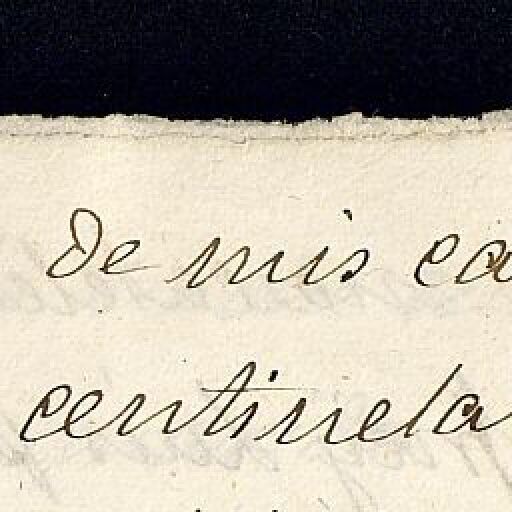 De mis ca
centinela